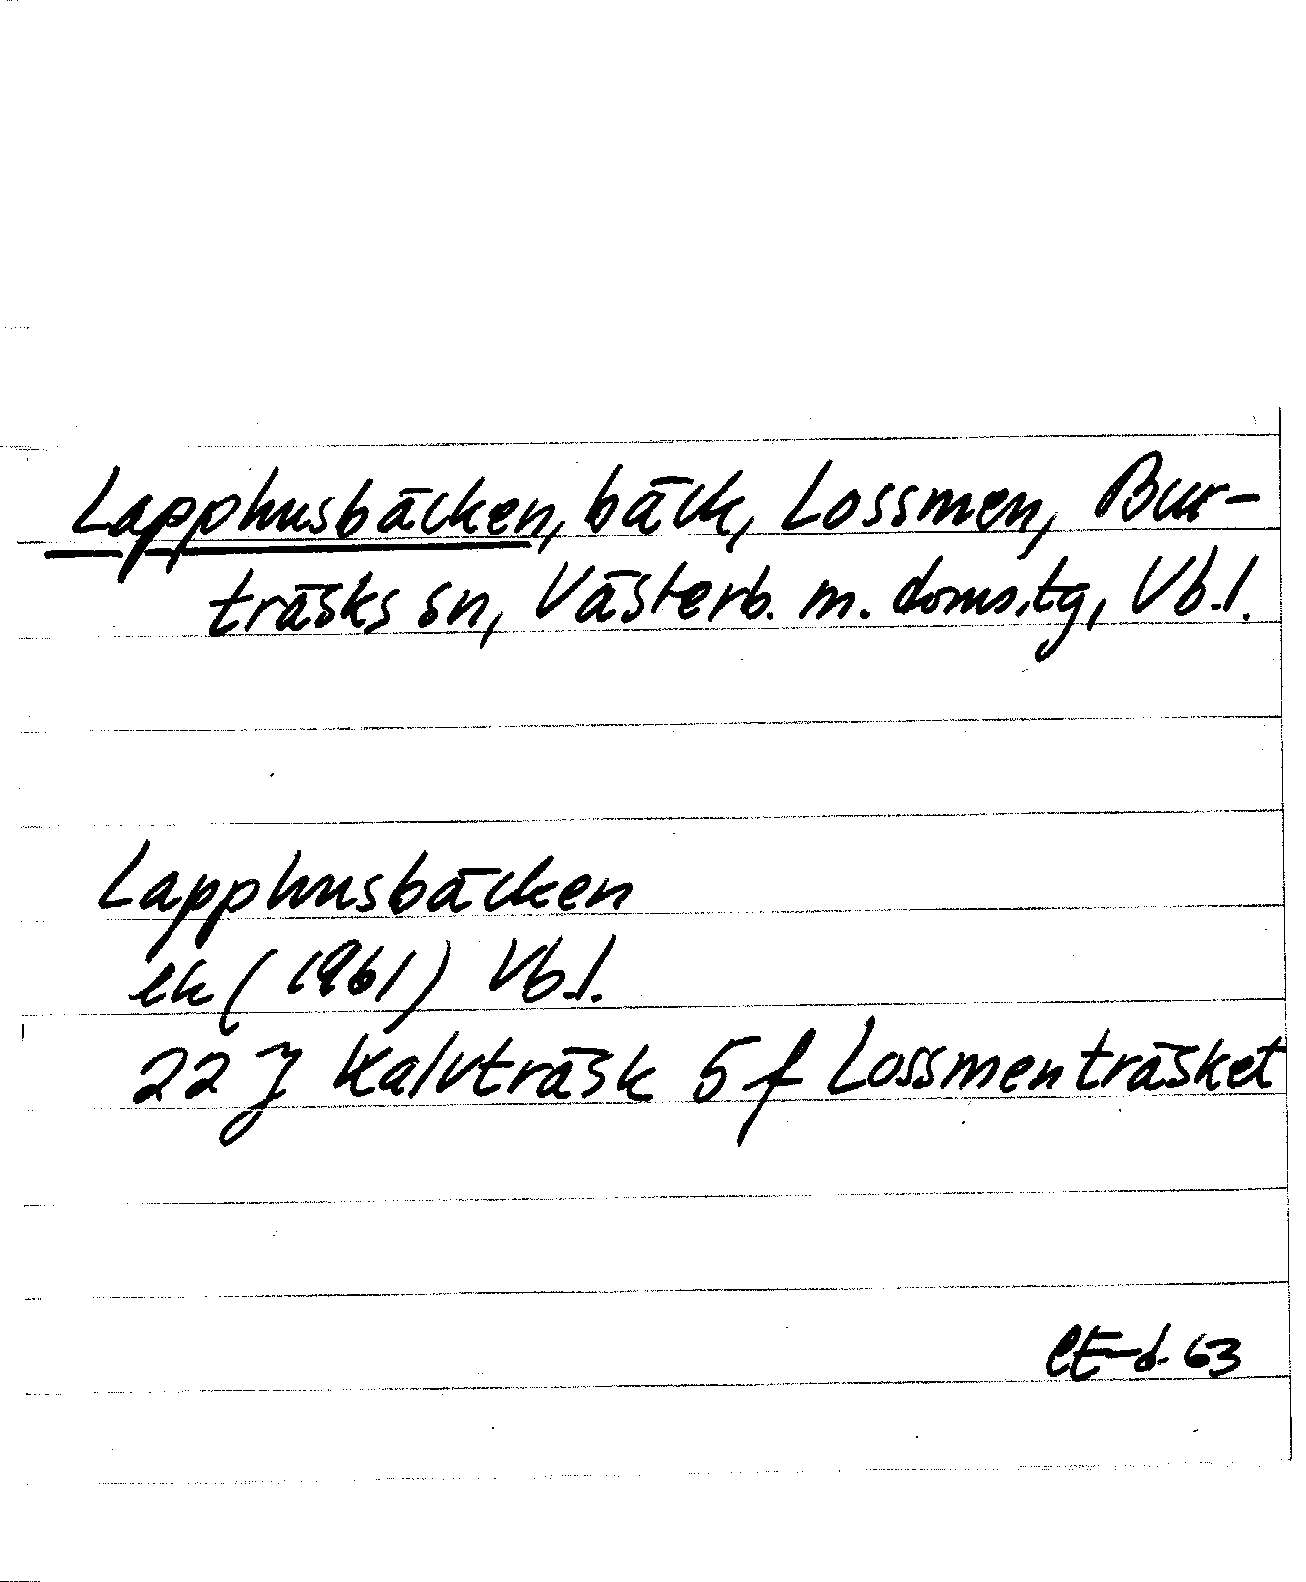 Lapphusbäcken, bäck, Lossmen, Bur-
träsks sn, Västerb. m. doms.tg, Vb.l.
Lapphusbäcken
ek (1961) Vb.l.
22 J Kalvträsk 5 f Lossmenträsket
63